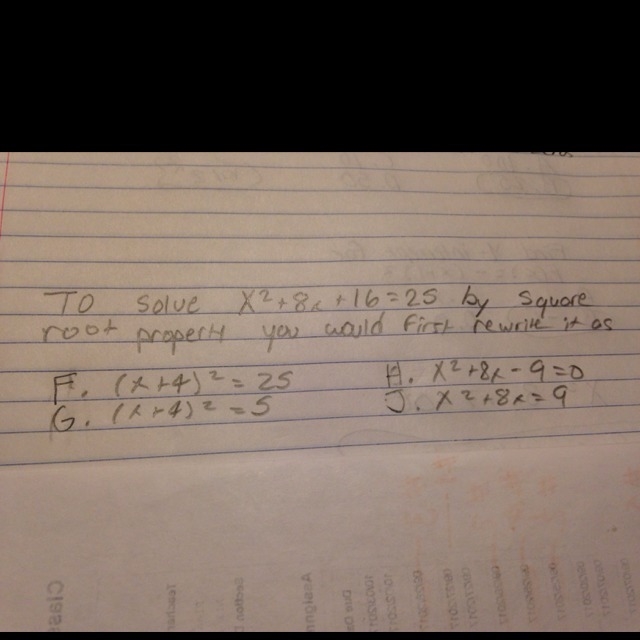 To solve x²+8x+16=25 by square
root property you would first rewrite it as
F. (x+4)²=25 H. x²+8x-9=0
G. (x+4)²=5 J. x²+8x=9